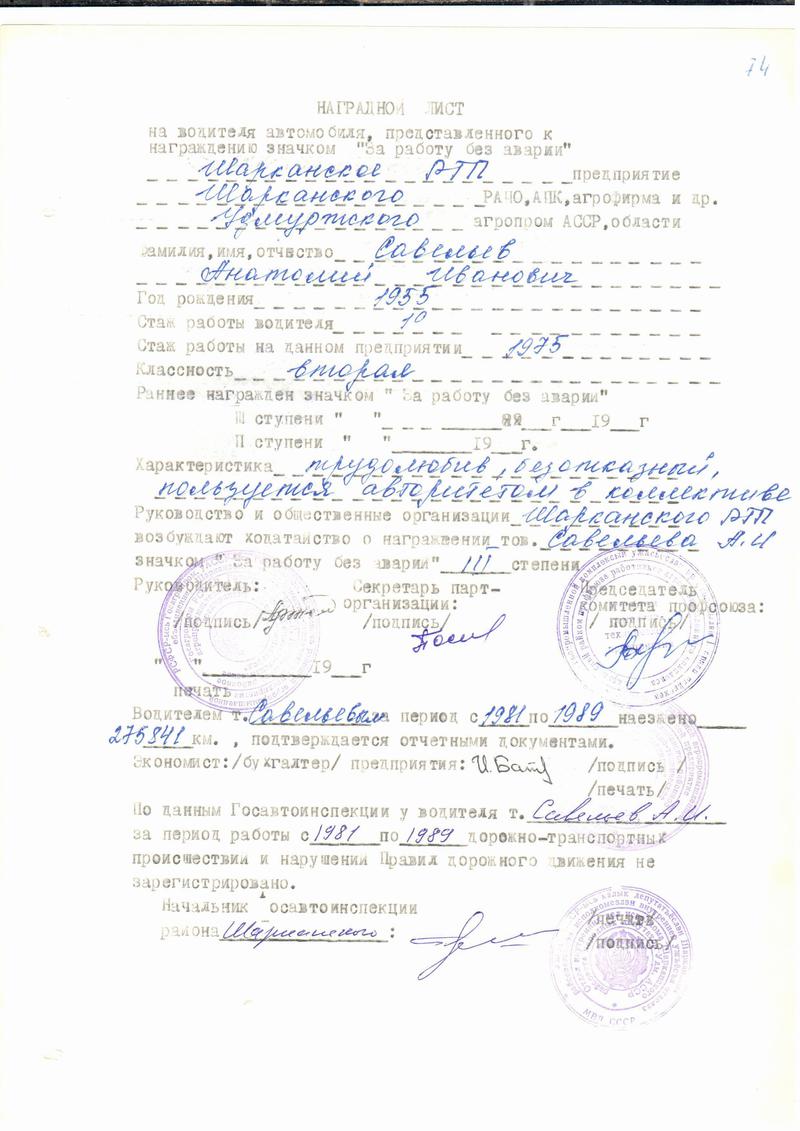 74
НАГРАДНОЙ ЛИСТ
на водителя автомобиля, представленного к
награждению значком "За работу без аварии"
Шарканское РТП предприятие
Шарканского РАПО,АПК,агрофирма и др.
Удмуртского агропром АССР,области
Фамилия,имя,отчество Савельев
Анатолий Иванович
Год рождения 1955
Стаж работы водителя 10
Стаж работы на данном предприятии 1975
Классность вторая
Раннее награжден значком " За работу без аварии"
Ш ступени " " г 19 г
П ступени " " 19 г.
Характеристика трудолюбив, безотказный,
пользуется авторитетом в коллективе
Руководство и общественные организации Шарканского РТП
возбуждают ходатайство о награжении тов. Савельева А.И
значком " За работу без аварии" III степени
Руководитель: Секретарь парт- Председатель
организации: комитета профсоюза:
/подпись/ /подпись/ / подпись/
" " 19 г
печать
Водителем т. Савельевым а период с 1981 по 1989 наезжено
275841 км. , подтверждается отчетными документами.
Экономист:/бухгалтер/ предприятия: /подпись /
/печать/
По данным Госавтоинспекции у водителя т. Савельев А.И.
за период работы с 1981 по 1989 дорожно-транспортных
происшествий и нарушений Правил дорожного движения не
зарегистрировано.
Начальник осавтоинспекции /печать
района Шарканского : /подпись/
МВД СССР